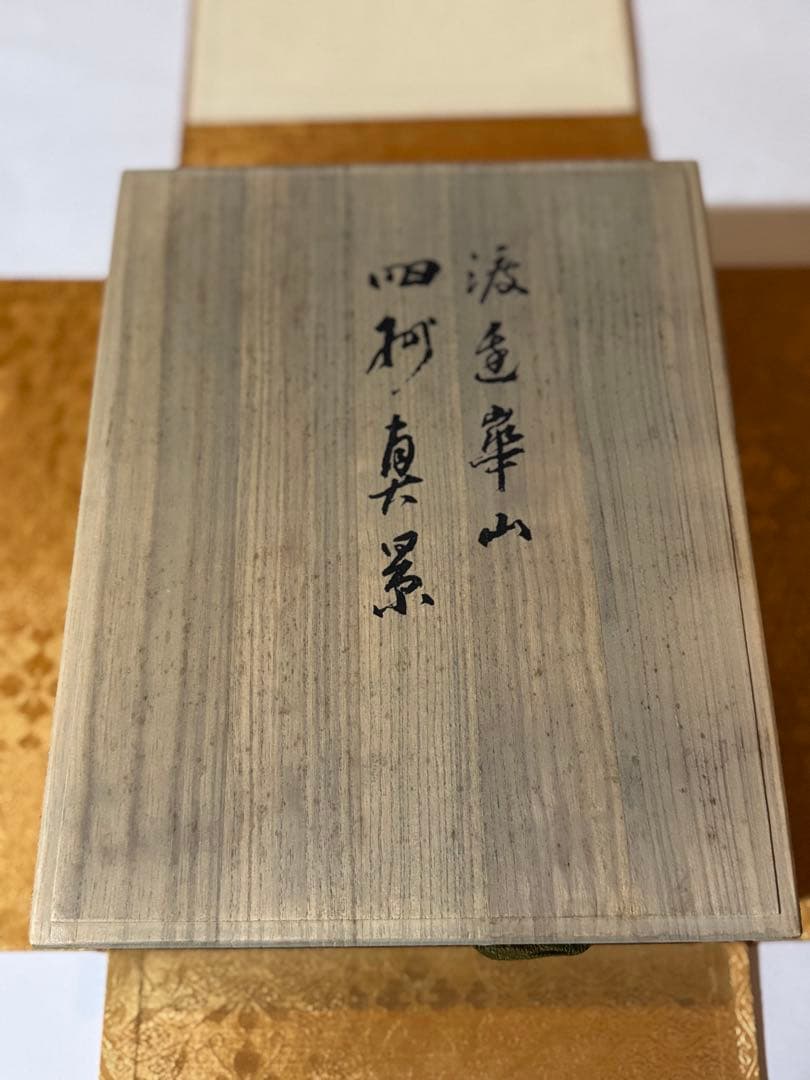 渡邉崋山
四州真景